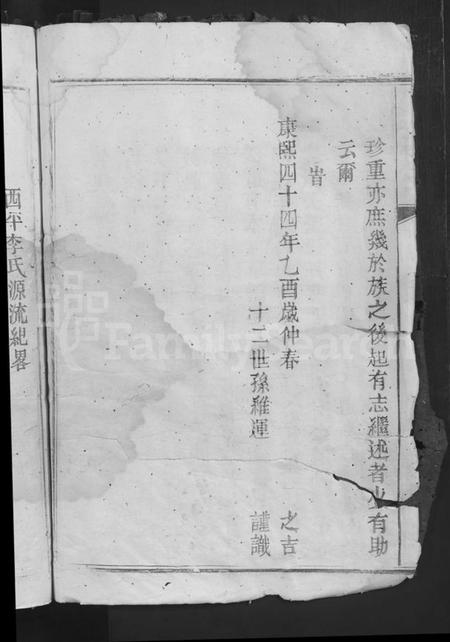 珍重亦庶幾於族之後起有志繼述者少有助
云爾
旹
康熙四十四年乙酉歲仲春 之吉
十二世孫維運 謹識
西平李氏源流紀畧
FamilySearch